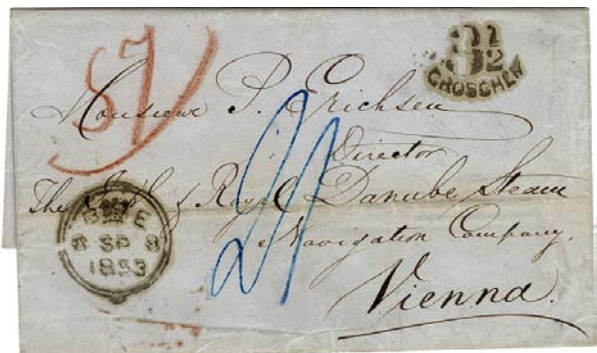 3 1/2
GROSCHEN
Monsieur P. Erichsen
Director
The Royal Danube Steam
Navigation Company.
Vienna.
B E
8 SP 8
1853